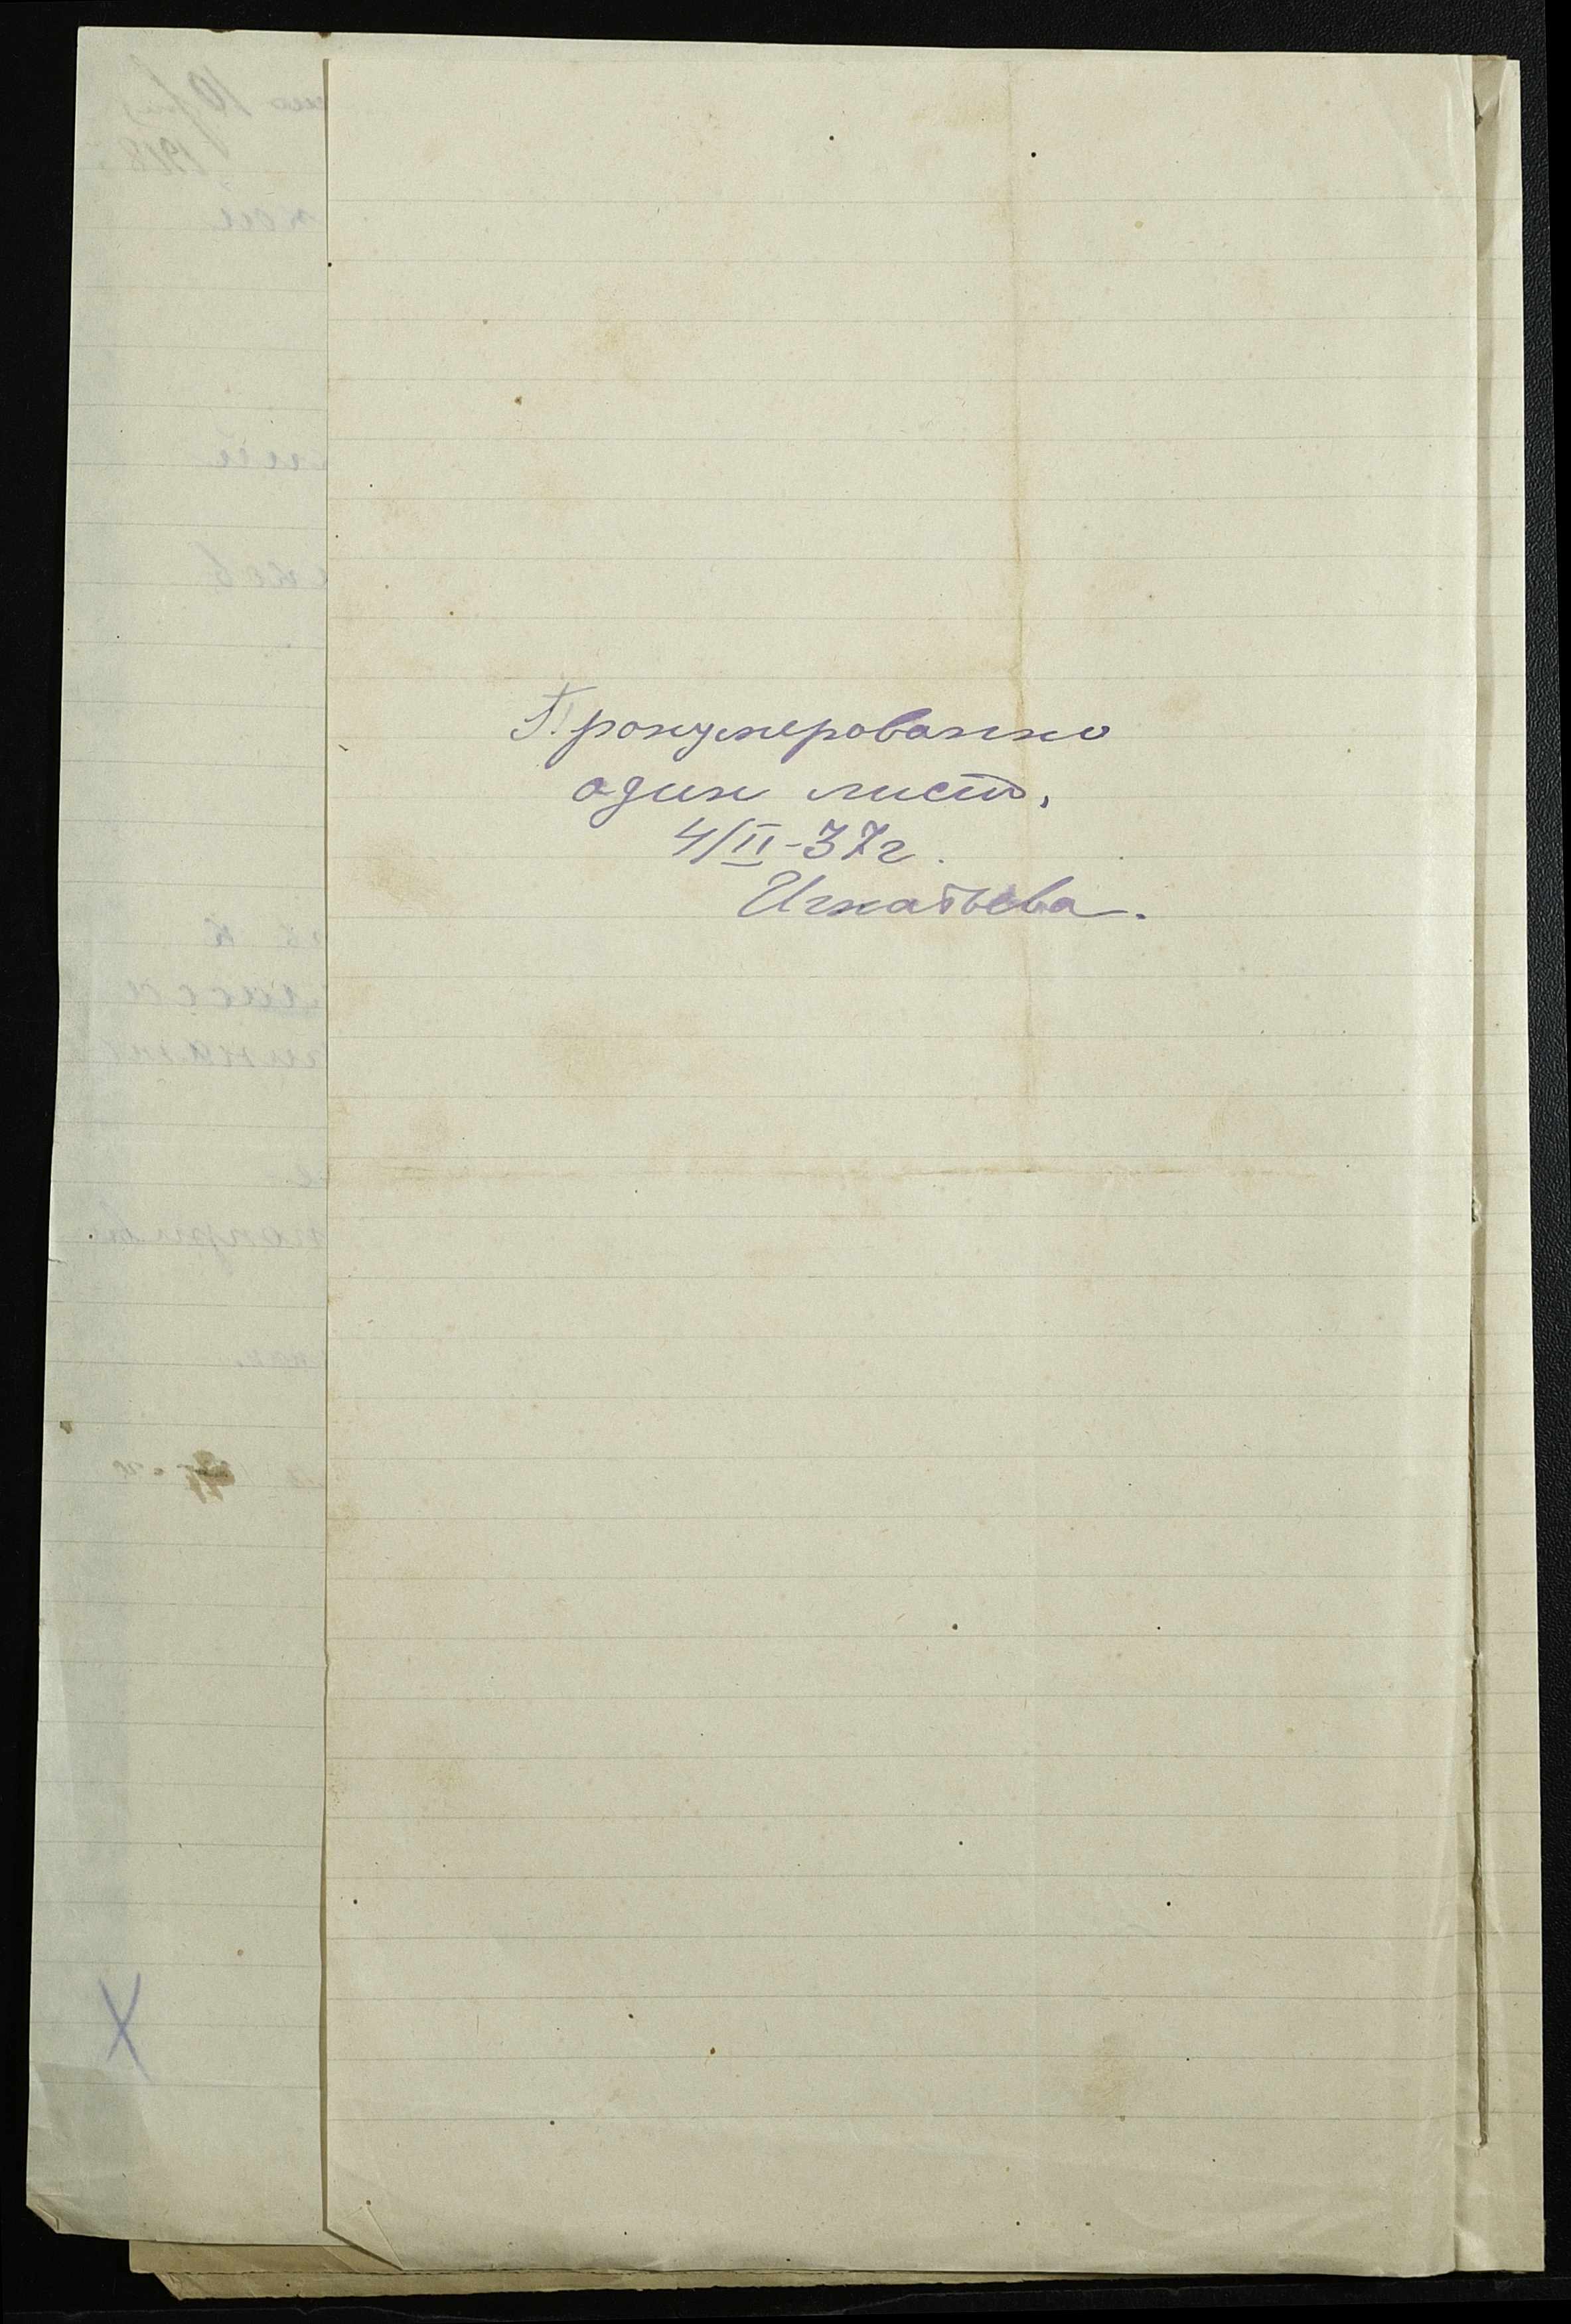 Пронумерованно
один лист.
4/II-37г.
Игнатьева.